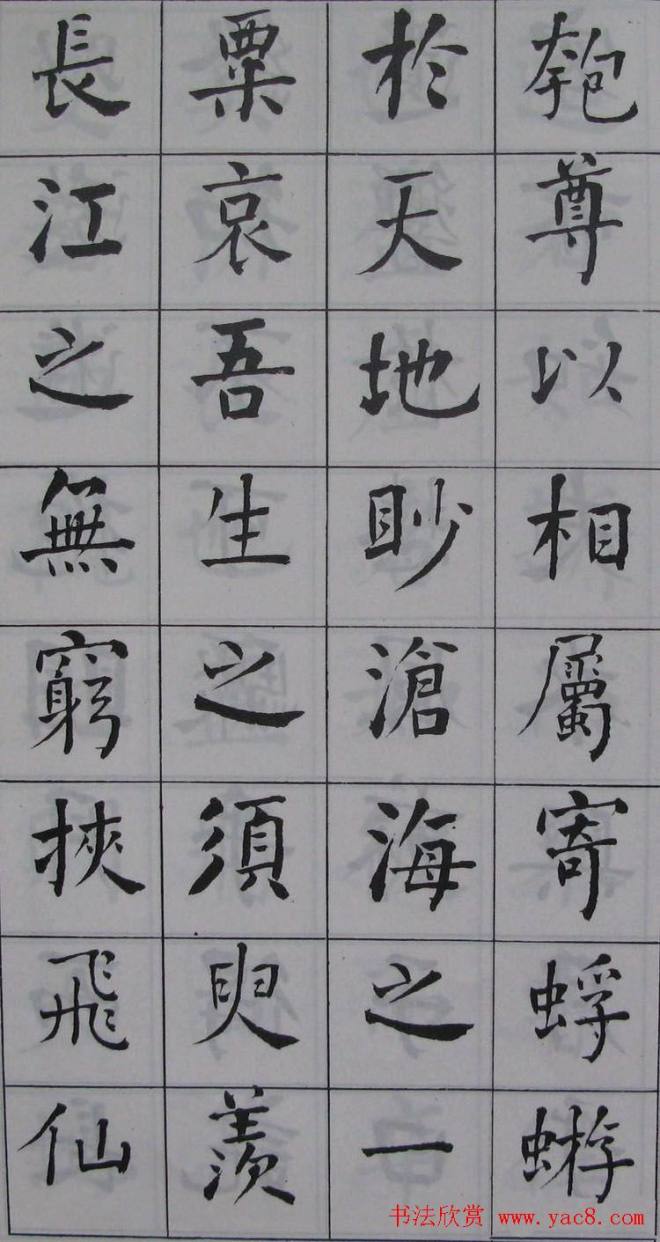 匏尊以相屬寄蜉蝣
於天地眇滄海之一
粟哀吾生之須臾羨
長江之無窮挾飛仙
书法欣赏 www.yac8.com